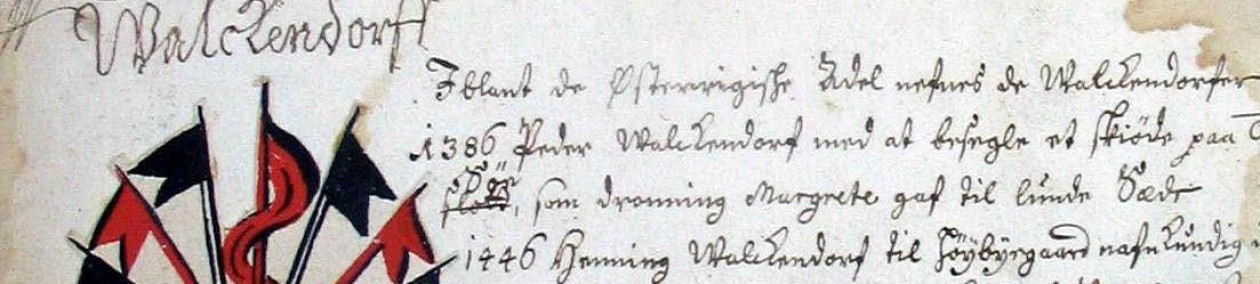 Walckendorff
Iblant de Østerrigishe Adel nefnes de Walckendorfer
1386 Peder Walckendorf med at besegle et skiöde paa
som dronning Margrete gaf til lunde Sæde
1446 Henning Walckendorf til Höybyegaard nafnkundig